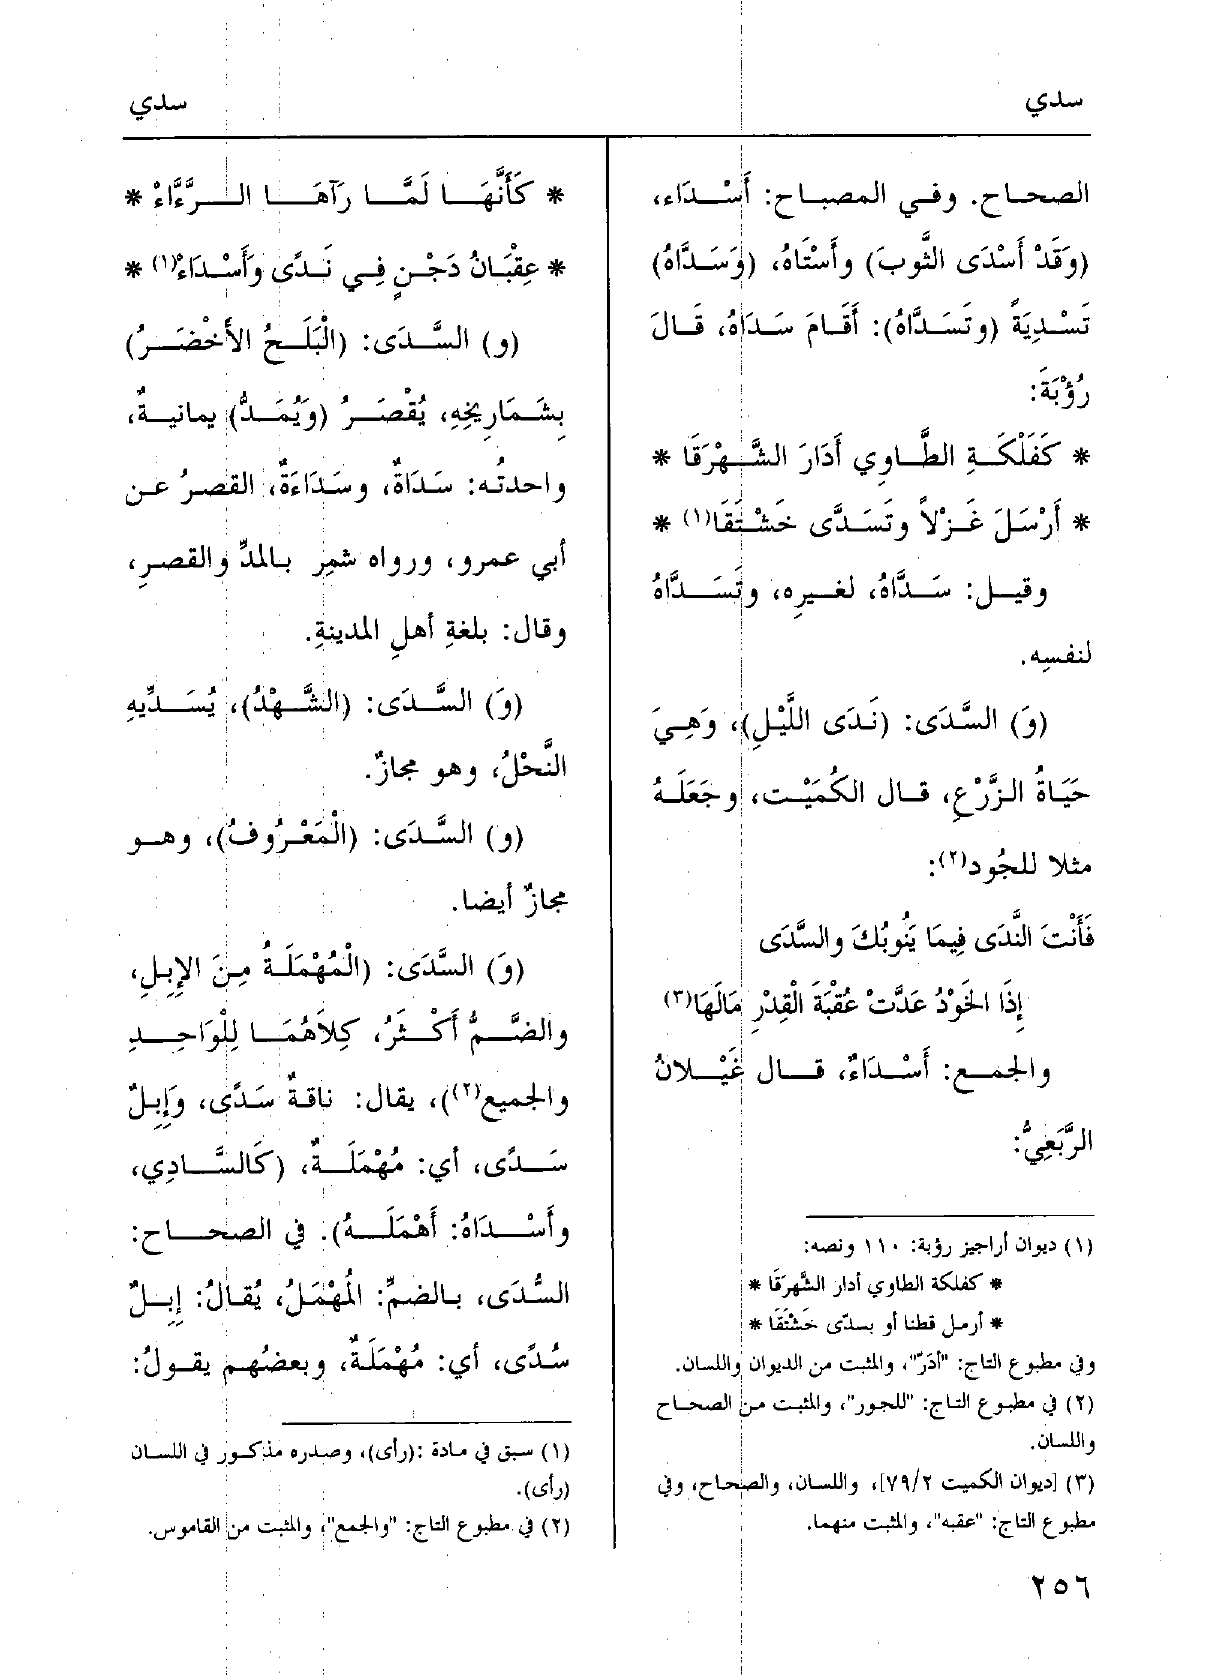 سدي
سدي
الصحاح. وفي المصباح: أَسْدَاء،
(وَقَدْ أَسْدَى الثَّوبَ) وأَسْتَاهُ، (وَسَدَّاهُ)
تَسْدِيَةً (وتَسَدَّاهُ): أَقَامَ سَدَاهُ، قَالَ
رُؤْبَةَ:
* كَفَلْكَةِ الطَّاوِي أَدَارَ الشَّهْرَقَا *
* أَرْسَلَ غَزْلاً وتَسَدَّى خَشْتَقَا(١) *
وقيل: سَدَّاهُ، لغيرِه، وتَسَدَّاهُ
لنفسِه.
(وَ) السَّدَى: (نَدَى اللَّيْلِ)، وَهِيَ
حَيَاةُ الزَّرْعِ، قال الكُمَيْت، وجَعَلَهُ
مثلا للجُود(٢):
فَأَنْتَ النَّدَى فِيمَا يَنُوبُكَ والسَّدَى
إِذَا الخَوْدُ عَدَّتْ عُقْبَةَ الْقِدْرِ مَالَهَا(٣)
والجمع: أَسْدَاءٌ، قال غَيْلانُ
الرَّبَعِيُّ:
(١) ديوان أراجيز رؤبة: ١١٠ ونصه:
* كفلكة الطاوي أدار الشَّهرَقَا *
* أرمل قطنا أو بسدّى خَشْتَقَا *
وفي مطبوع التاج: "أَدَرّ"، والمثبت من الديوان واللسان.
(٢) في مطبوع التاج: "للجور"، والمثبت من الصحاح
واللسان.
(٣) [ديوان الكميت ٧٩/٢]، واللسان، والصحاح، وفي
مطبوع التاج: "عقبه"، والمثبت منهما.
٢٥٦
* كَأَنَّهَا لَمَّا رَآهَا الرَّءَّاءْ *
* عِقْبَانُ دَجْنٍ فِي نَدًى وَأَسْدَاءْ(١) *
(و) السَّدَى: (الْبَلَحُ الأَخْضَرُ)
بِشَمَارِيخِهِ، يُقْصَرُ (وَيُمَدُّ) يمانيةٌ،
واحدتُه: سَدَاةٌ، وسَدَاءَةٌ، القصرُ عن
أبي عمرو، ورواه شمِر بالمدِّ والقصرِ،
وقال: بلغةِ أهلِ المدينةِ.
(وَ) السَّدَى: (الشَّهْدُ)، يُسَدِّيهِ
النَّحْلُ، وهو مجازٌ.
(و) السَّدَى: (الْمَعْرُوفُ)، وهو
مجازٌ أيضا.
(وَ) السَّدَى: (الْمُهْمَلَةُ مِنَ الإِبِلِ،
والضَّمُّ أَكْثَرُ، كِلاَهُمَا لِلْوَاحِدِ
والجميع(٢))، يقال: ناقةٌ سَدًى، وَإِبِلٌ
سَدًى، أي: مُهْمَلَةٌ، (كَالسَّادِي،
وأَسْدَاهُ: أَهْمَلَهُ). في الصحاح:
السُّدَى، بالضمِّ: الْمُهْمَلُ، يُقَالُ: إِبِلٌ
سُدًى، أي: مُهْمَلَةٌ، وبعضُهم يقولُ:
(١) سبق في مادة :(رأى)، وصدره مذكور في اللسان
(رأى).
(٢) في مطبوع التاج: "والجمع"، والمثبت من القاموس.